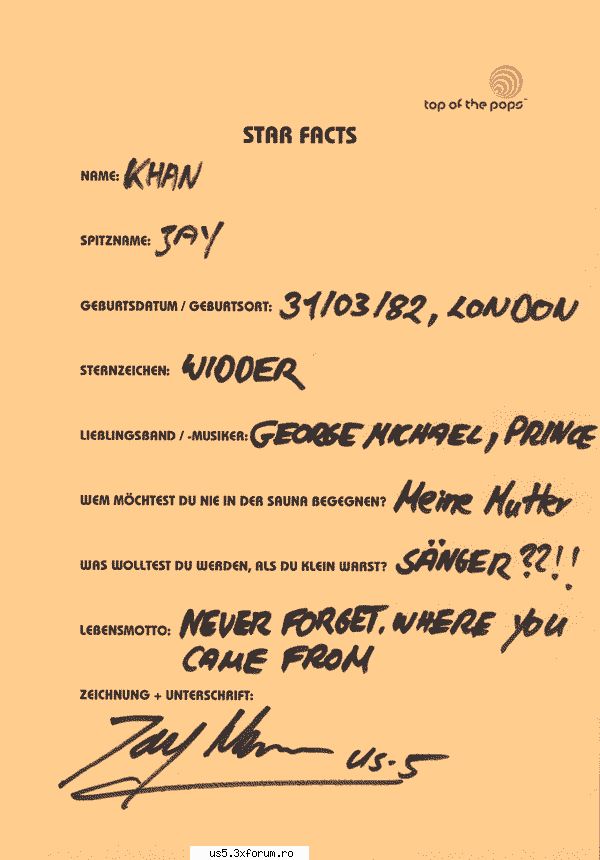 top of the pops™
STAR FACTS
NAME: KHAN
SPITZNAME: JAY
GEBURTSDATUM / GEBURTSORT: 31/03/82, LONDON
STERNZEICHEN: WIDDER
LIEBLINGSBAND / -MUSIKER: GEORGE MICHAEL, PRINCE
WEM MÖCHTEST DU NIE IN DER SAUNA BEGEGNEN? Meine Mutter
WAS WOLLTEST DU WERDEN, ALS DU KLEIN WARST? SÄNGER??!!
LEBENSMOTTO: NEVER FORGET. WHERE YOU
CAME FROM
ZEICHNUNG + UNTERSCHRIFT:
Jay Khan US-5
us5.3xforum.ro